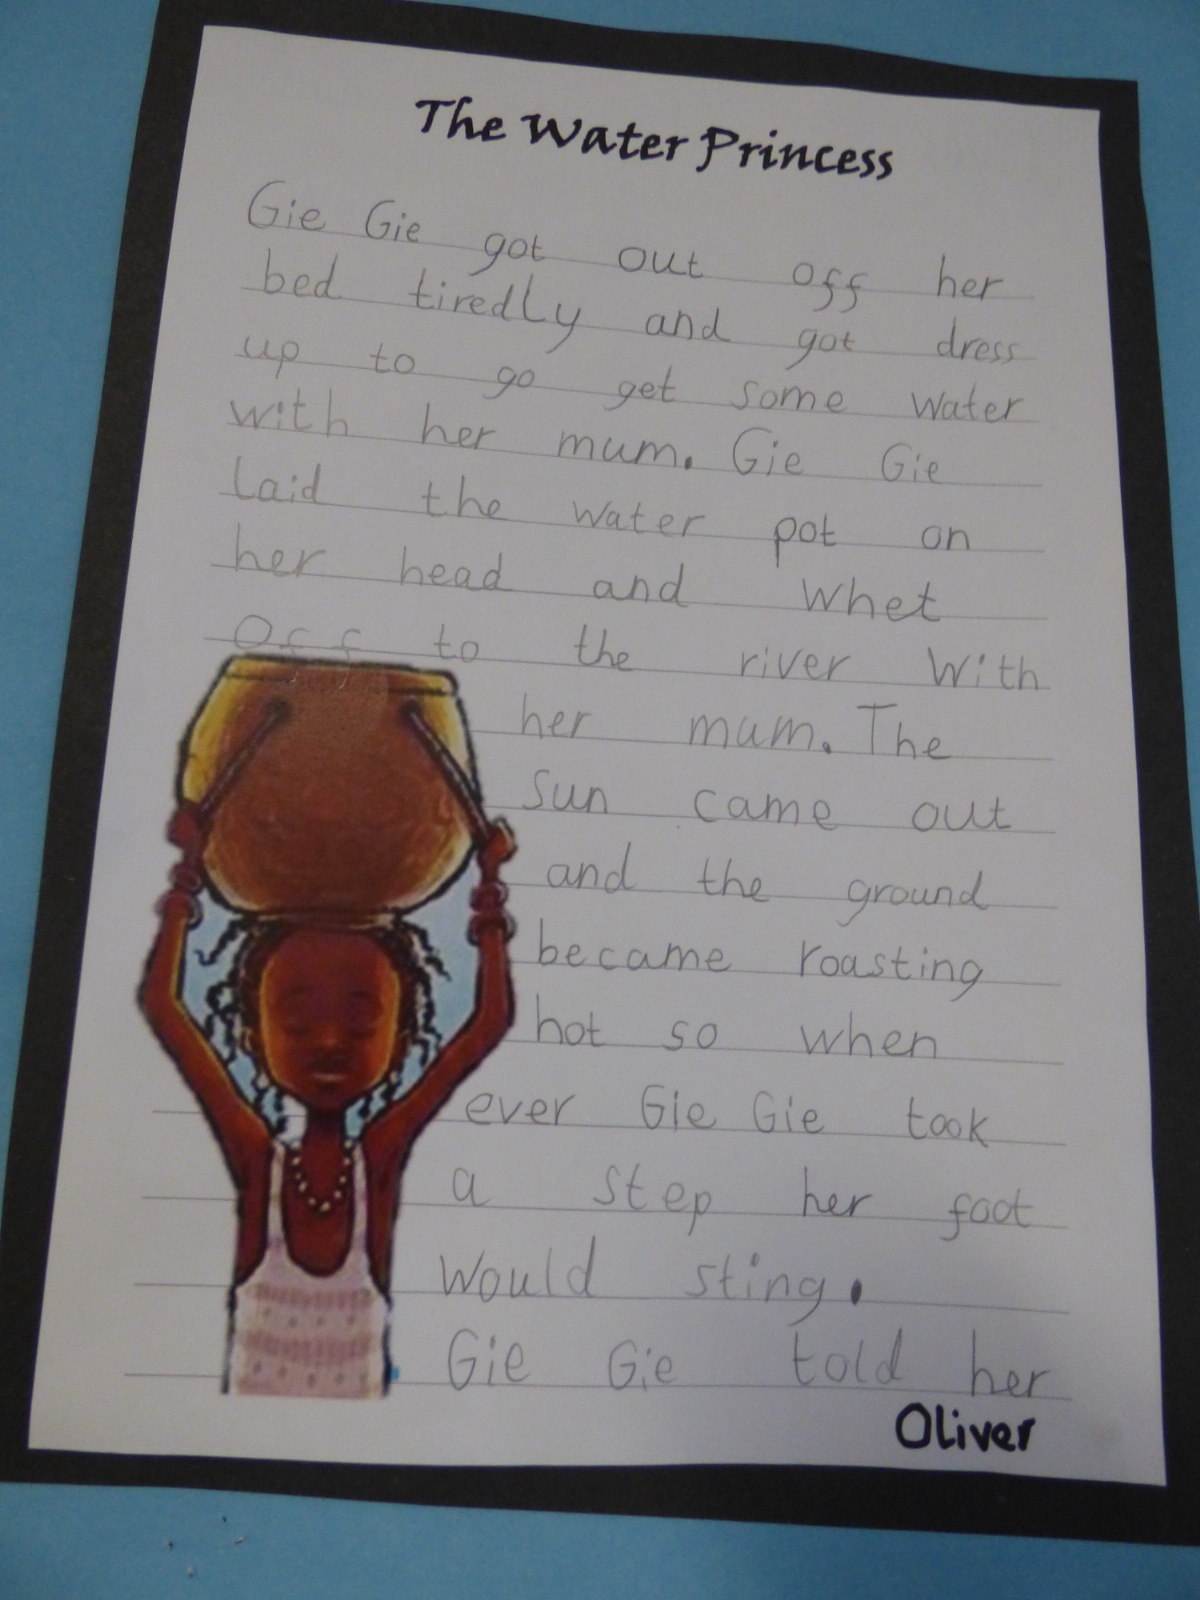 The Water Princess
Gie Gie got out off her
bed tiredly and got dress
up to go get some water
with her mum. Gie Gie
laid the water pot on
her head and whet
off to the river with
her mum. The
sun came out
and the ground
became roasting
hot so when
ever Gie Gie took
a step her foot
would sting.
Gie Gie told her
Oliver